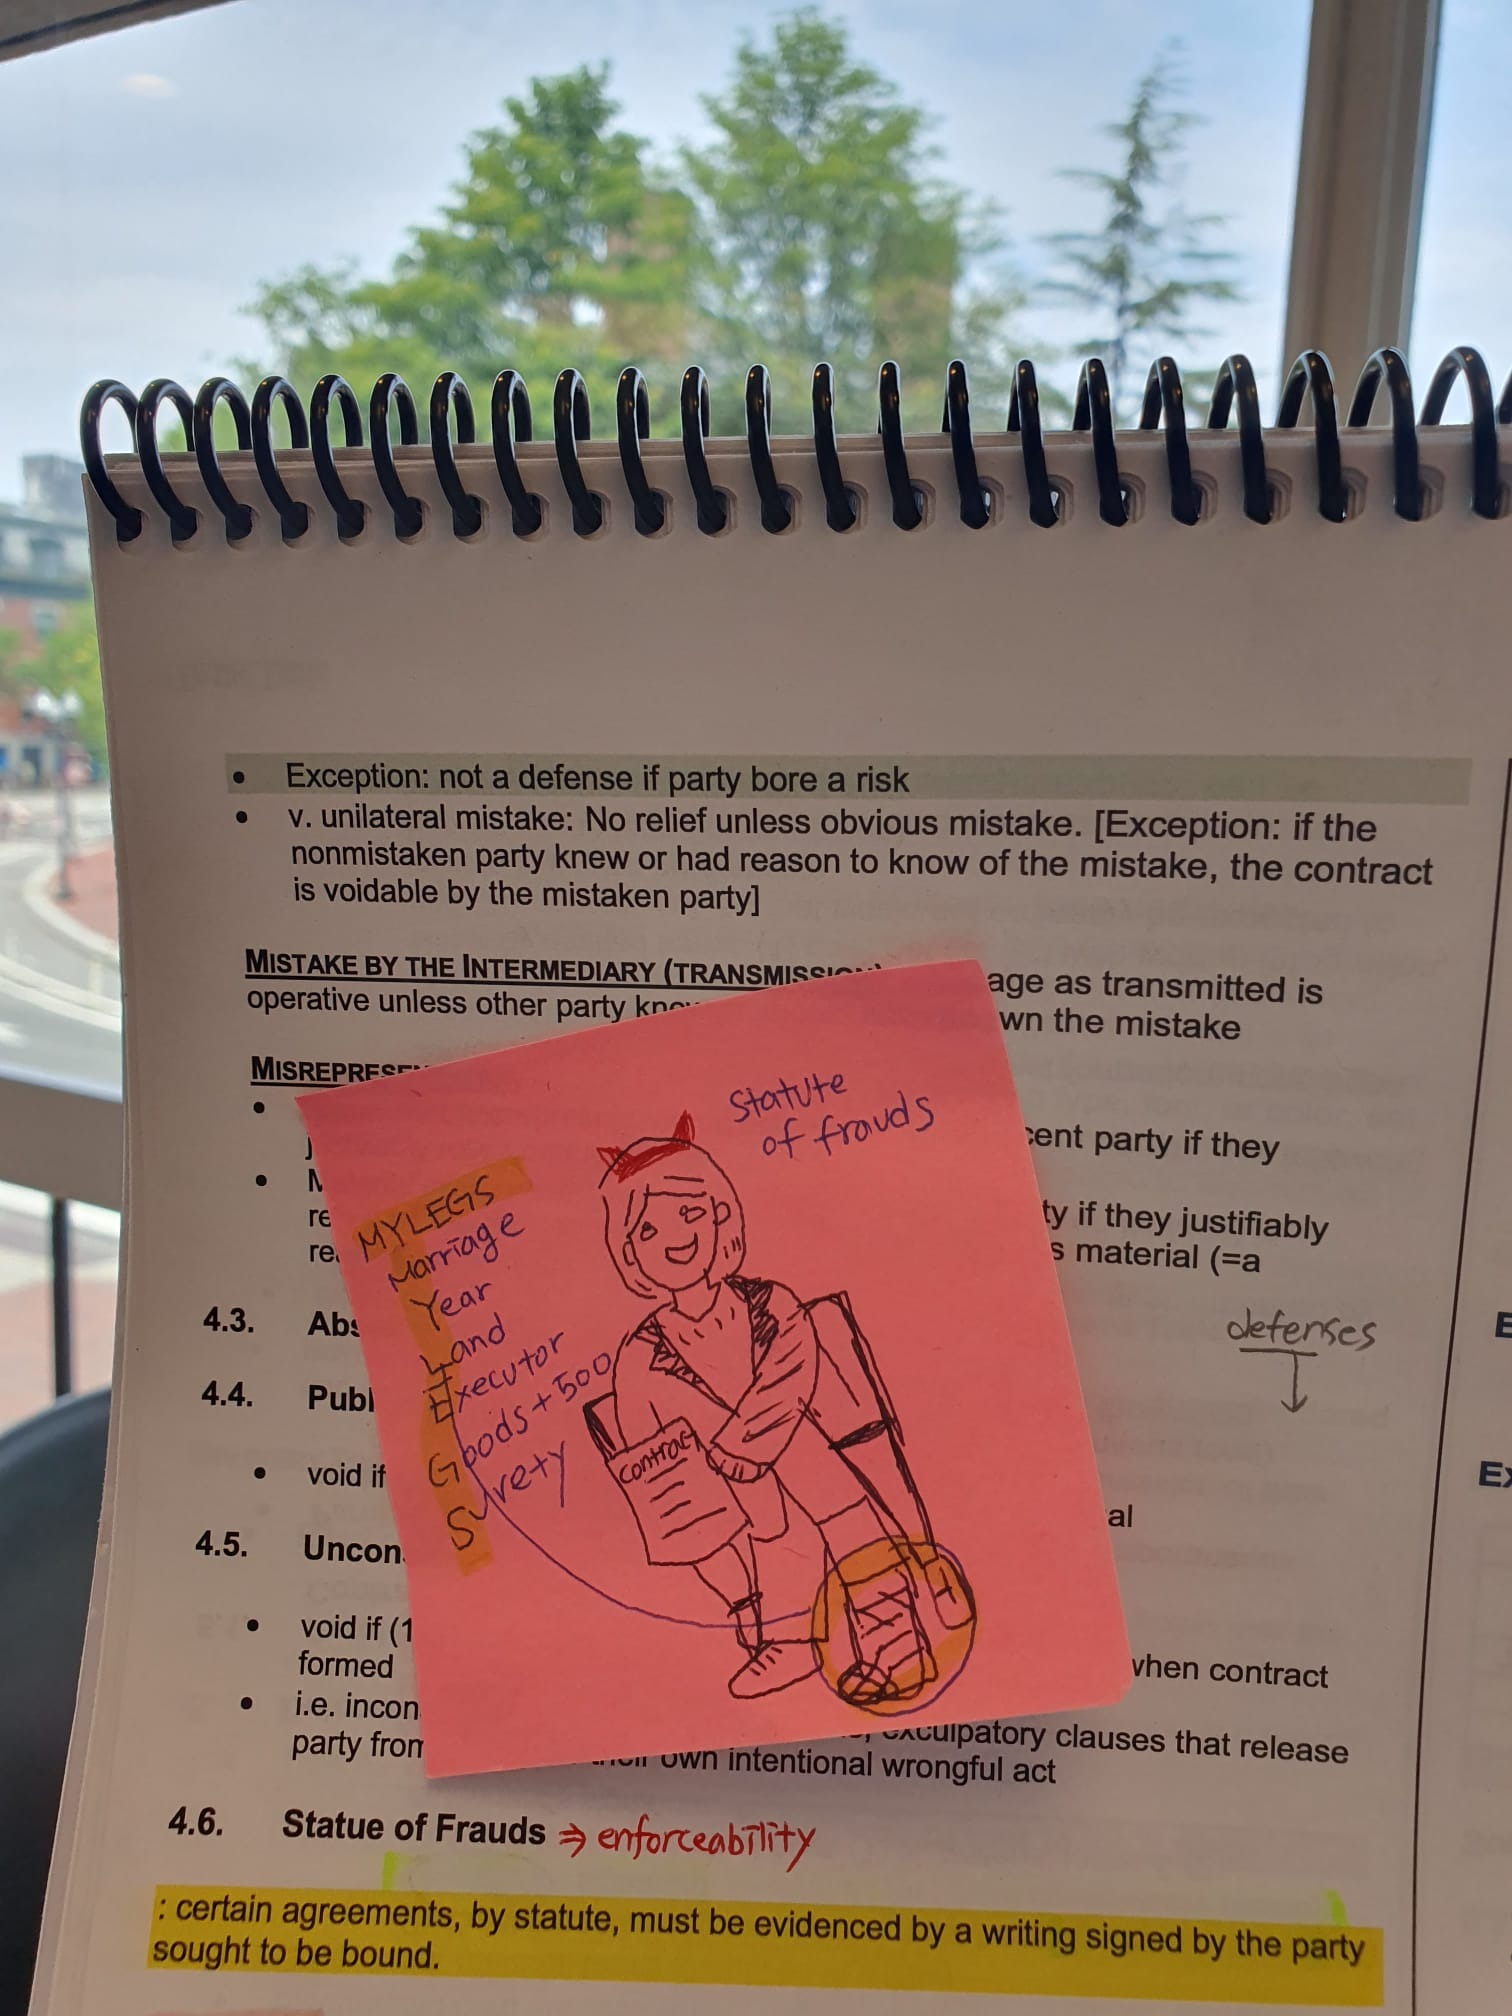 Exception: not a defense if party bore a risk
v. unilateral mistake: No relief unless obvious mistake. [Exception: if the
nonmistaken party knew or had reason to know of the mistake, the contract
is voidable by the mistaken party]
MISTAKE BY THE INTERMEDIARY (TRANSMISSION) age as transmitted is
operative unless other party wn the mistake
cent party if they
ty if they justifiably
s material (=a
Statute
of frauds
MYLEGS
Marriage
Year
Land
Executor
Goods+500
Surety
contract
defenses
4.3. Abs
4.4. Publ
void if
al
4.5. Uncon
void if (1
formed when contract
i.e. incon
exculpatory clauses that release
party from own intentional wrongful act
4.6. Statue of Frauds ⇒ enforceability
: certain agreements, by statute, must be evidenced by a writing signed by the party
sought to be bound.
E
Ex